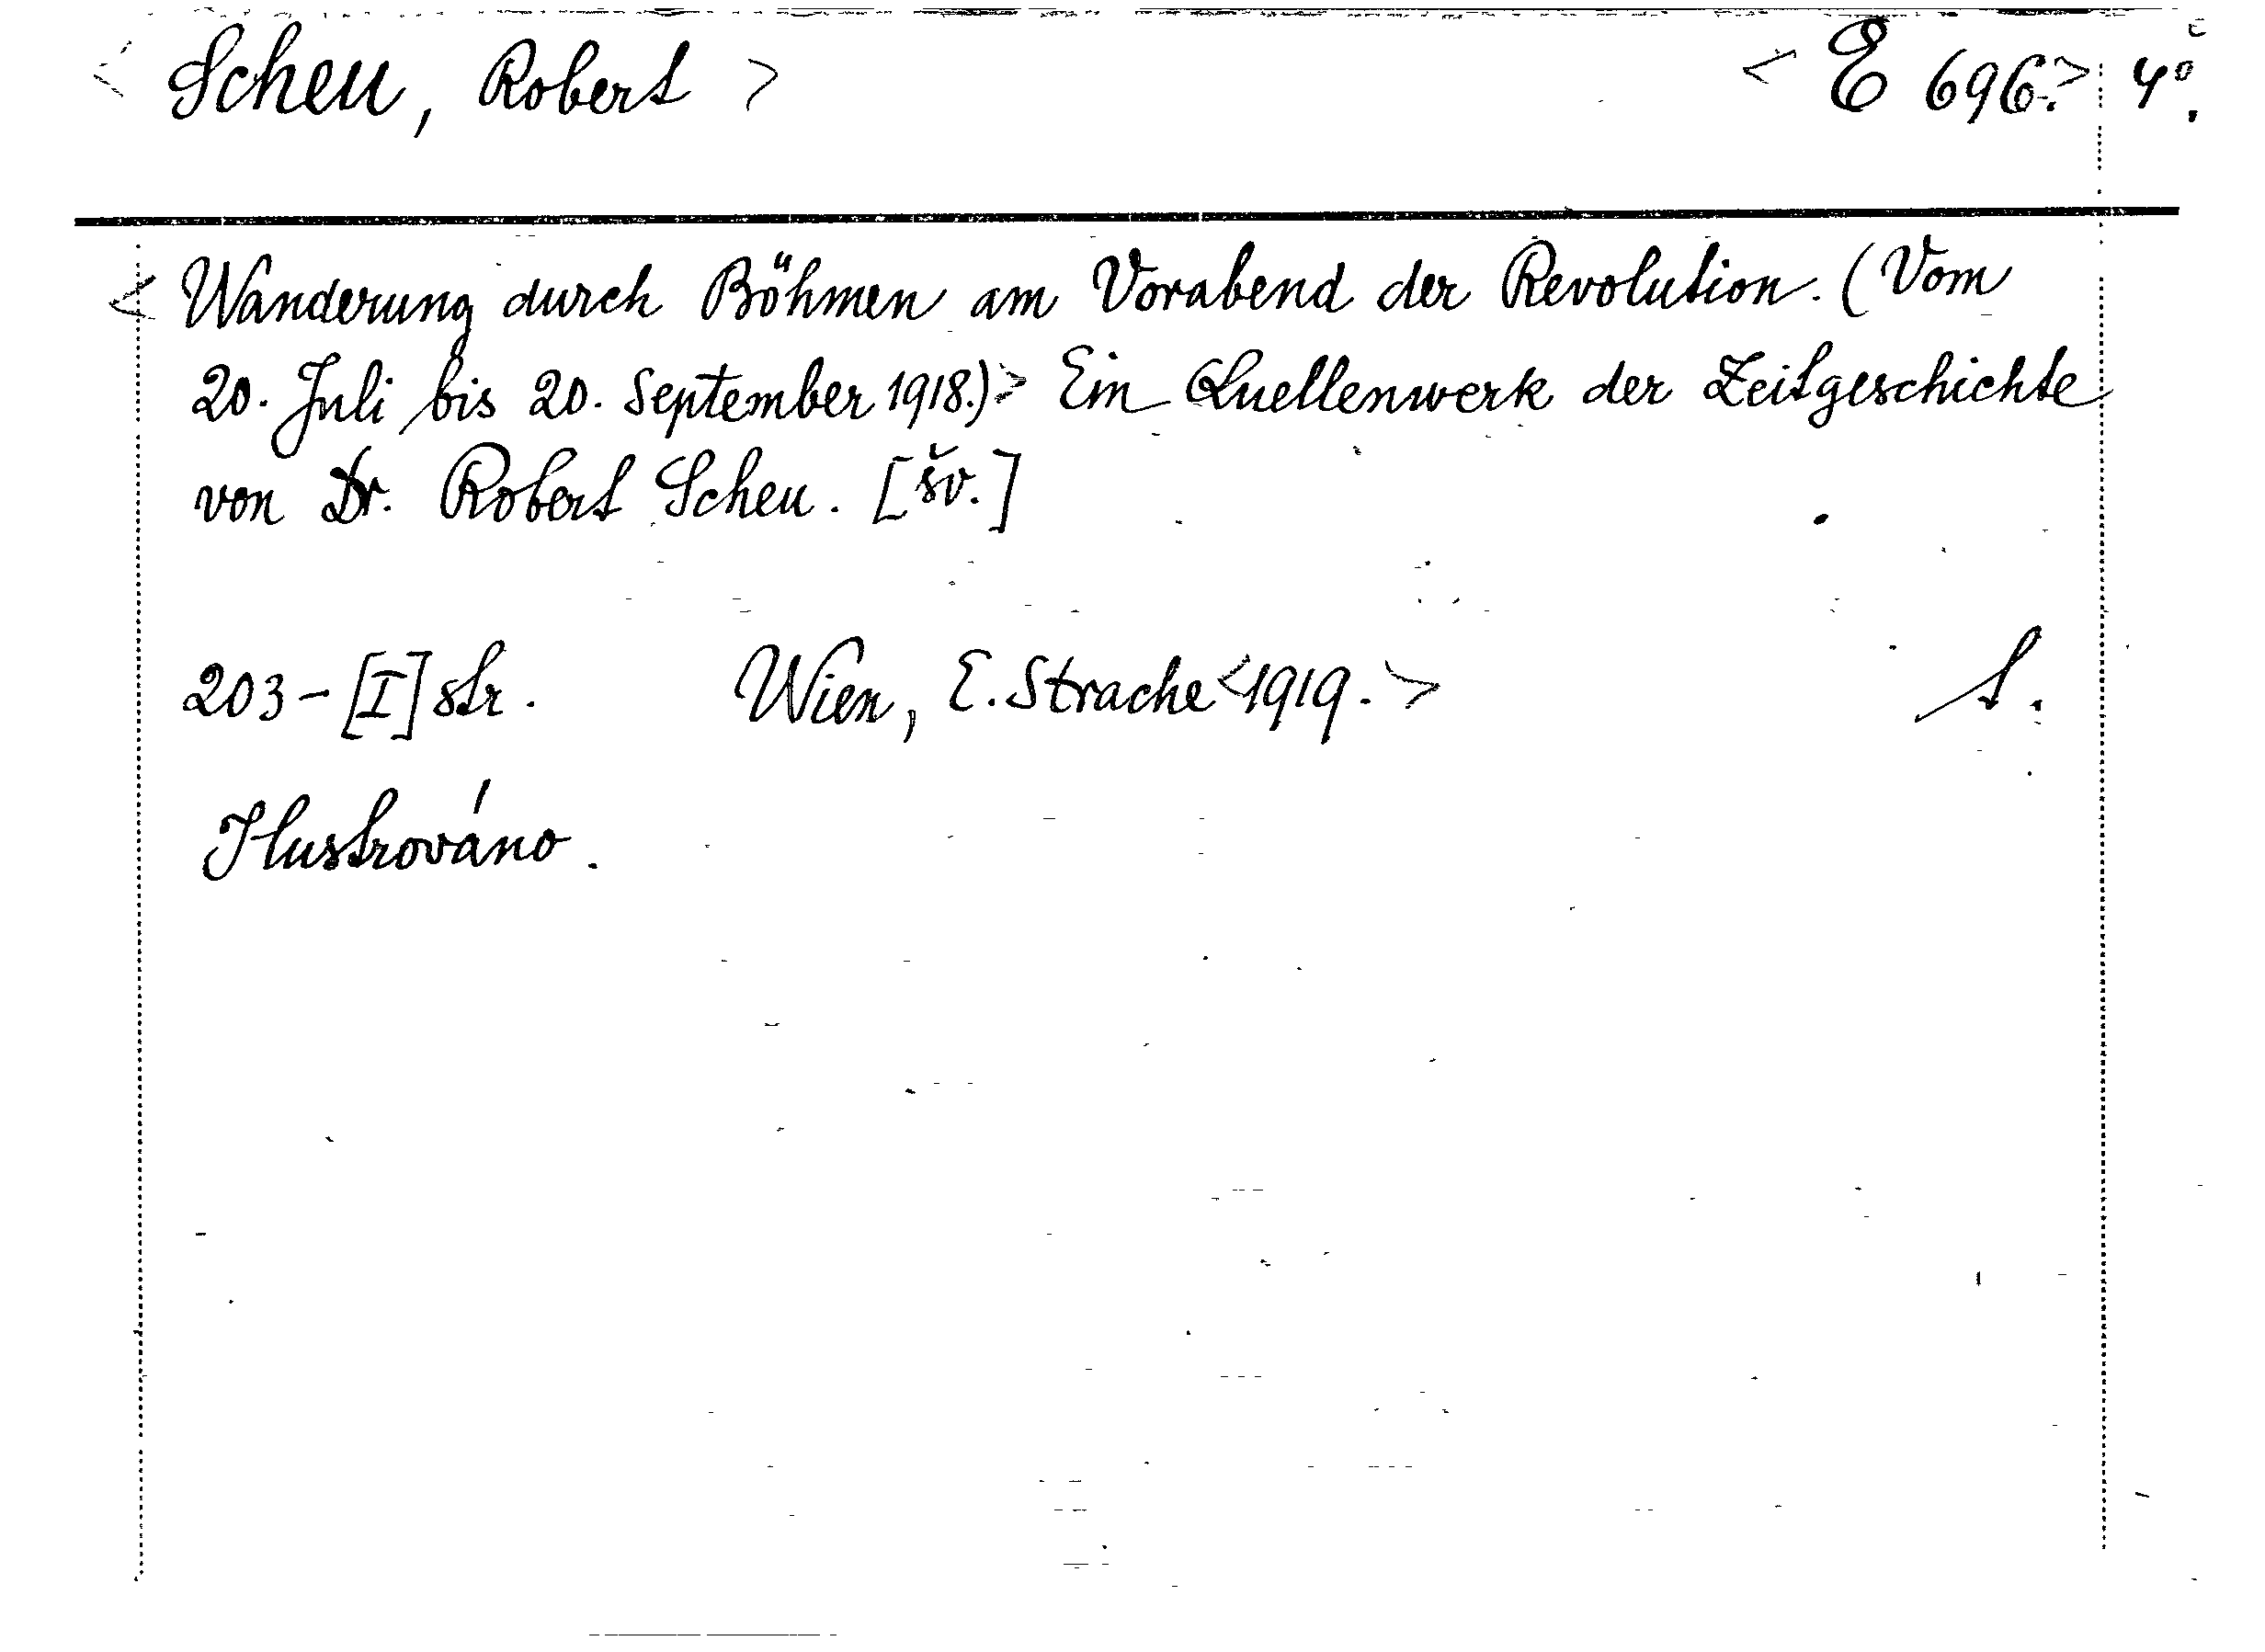 < Scheu, Robert > < E 696.> 4°.
< Wanderung durch Böhmen am Vorabend der Revolution. (Vom
20. Juli bis 20. September 1918.)> Ein Quellenwerk der Zeitgeschichte
von Dr. Robert Scheu. [šv.]
203-[I] str. Wien, E. Strache <1919.>
Ilustrováno.